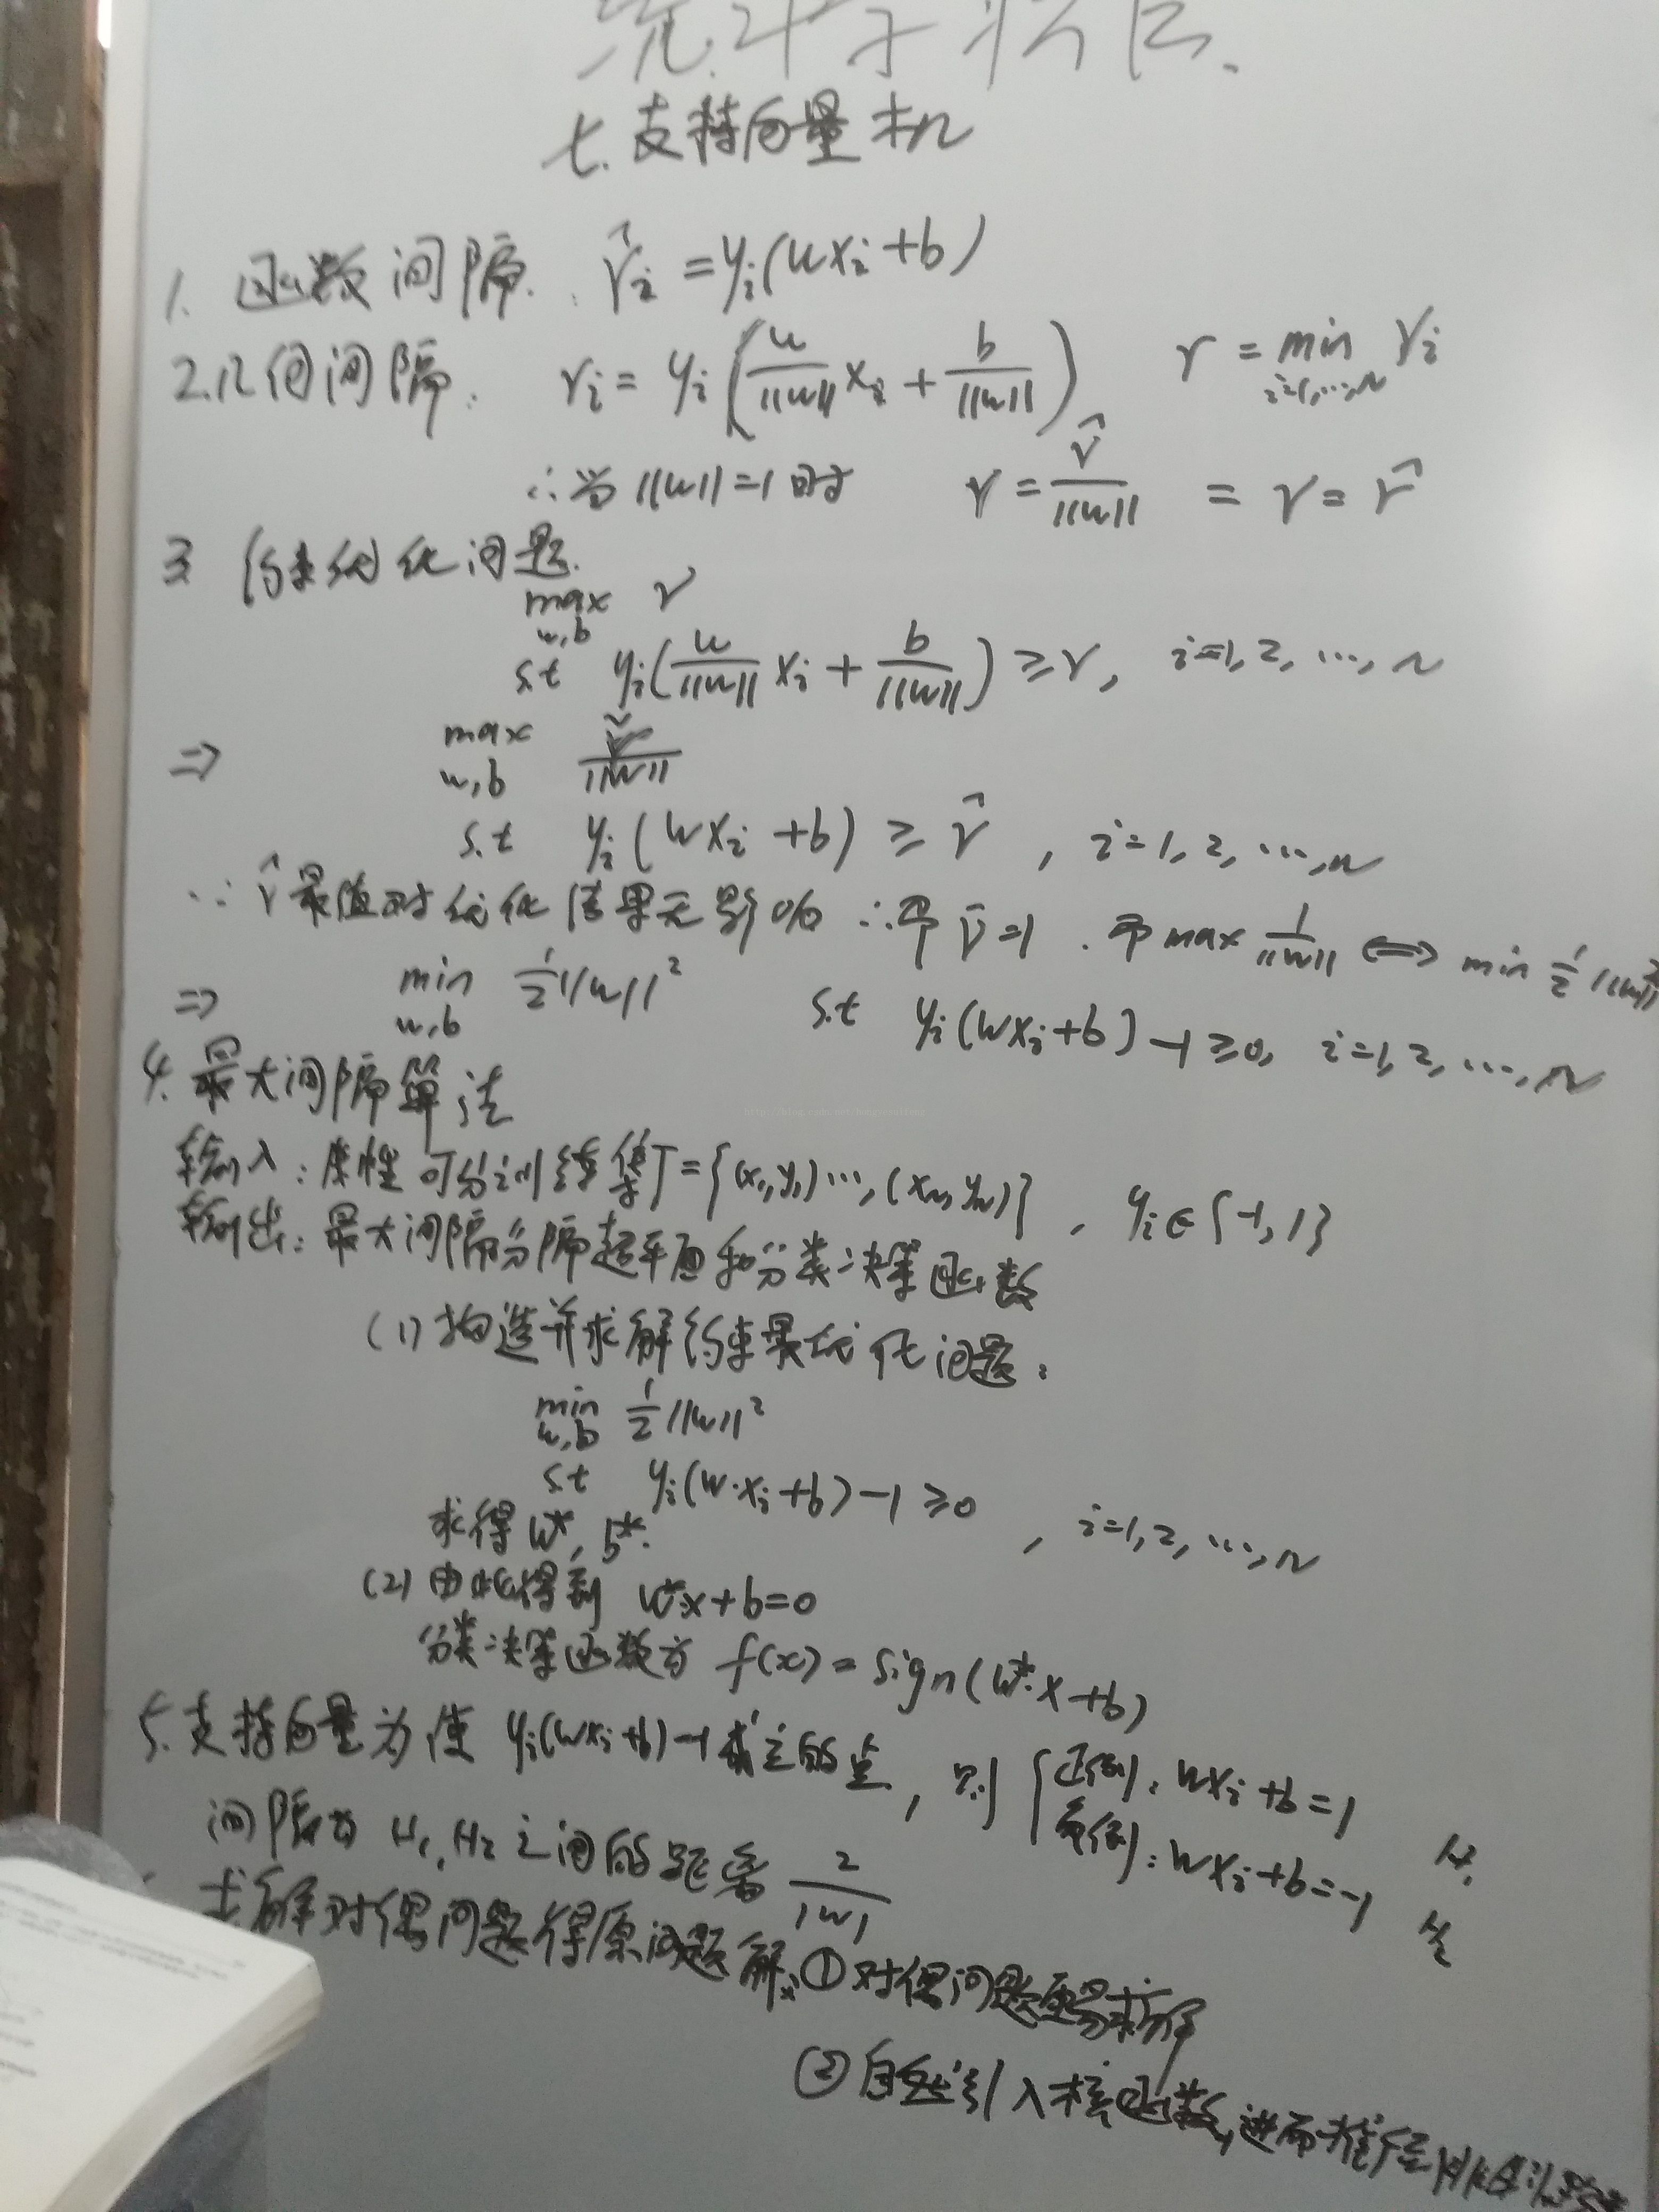 七.支持向量机
1. 函数间隔: r̂i = yi(wxi+b)
2.几何间隔: ri = yi(w/||w|| xi + b/||w||) r = min i=1,…,N ri
∴当||w||=1时 r = r̂/||w|| = r = r̂
3 约束优化问题.
max w,b r
s.t yi(w/||w|| xi + b/||w||) ≥ r, i=1, 2, …, N
⇒ max w,b r̂/||w||
s.t yi(wxi+b) ≥ r̂, i=1, 2, …, N
∵ r̂ 最值对优化结果无影响 ∴ 即 r̂=1. 即 max 1/||w|| ⟺ min 1/2 ||w||²
⇒ min w,b 1/2||w||² s.t yi(wxi+b)-1≥0, i=1, 2, …, N
4. 最大间隔算法
输入: 线性可分训练集T={(x1,y1)…,(xN,yN)}, yi∈{-1,1}
输出: 最大间隔分隔超平面和分类决策函数
(1)构造并求解约束最优化问题:
min w,b 1/2||w||²
s.t yi(w·xi+b)-1≥0, i=1,2, …,N
求得w*, b*.
(2)由此得到 w*·x+b=0
分类决策函数为 f(x)=sign(w*·x+b)
5.支持向量为使 yi(wxi+b)-1成立的点, 则 { 正例: wxi+b=1 H1
负例: wxi+b=-1 H2
间隔为 H1,H2之间的距离 2/|w|
求解对偶问题得原问题解: ①对偶问题更易求解
②自然引入核函数,进而推广至非线性